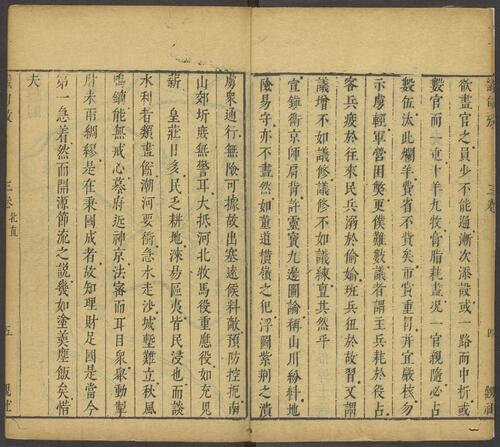 欲盡官之員少不能過漸次添設或一路而中析或
數官而一重十羊九牧膏脂耗盡况一官親隨必占
數伍汰此糜羊費省不貲矣市賞重則并宜嚴核勿
示虜輕軍營田獎更僕難數議者謂王兵耗於役占
客兵疲於往來民兵溺於偷媮班兵狃於故習又謂
議增不如議修議修不如議練亶其然乎
宣鎭衛京師肩背許靈寶九邊圖論稱山川紛糾地
險易守亦不盡然如董道橫嶺之犯浮圖紫荆之潰
虜衆通行無險可據故出塞遠候料敵預防控扼南
山郊圻庶無警耳大抵河北牧馬役重應役如充見
薪 皇莊日多民乏耕地淶易區夷皆民浸也而談
水利者類畫餅潮河要衝急水走沙城塹難立秋風
鳴鏑能無戒心墓府近神京法審而耳目衆衆動掣
肘未雨綢繆是在秉國成者故知理財足國是當今
第一急着然而開源節流之説幾如塗羮塵飯矣惜
夫
三卷
三卷 北直
五